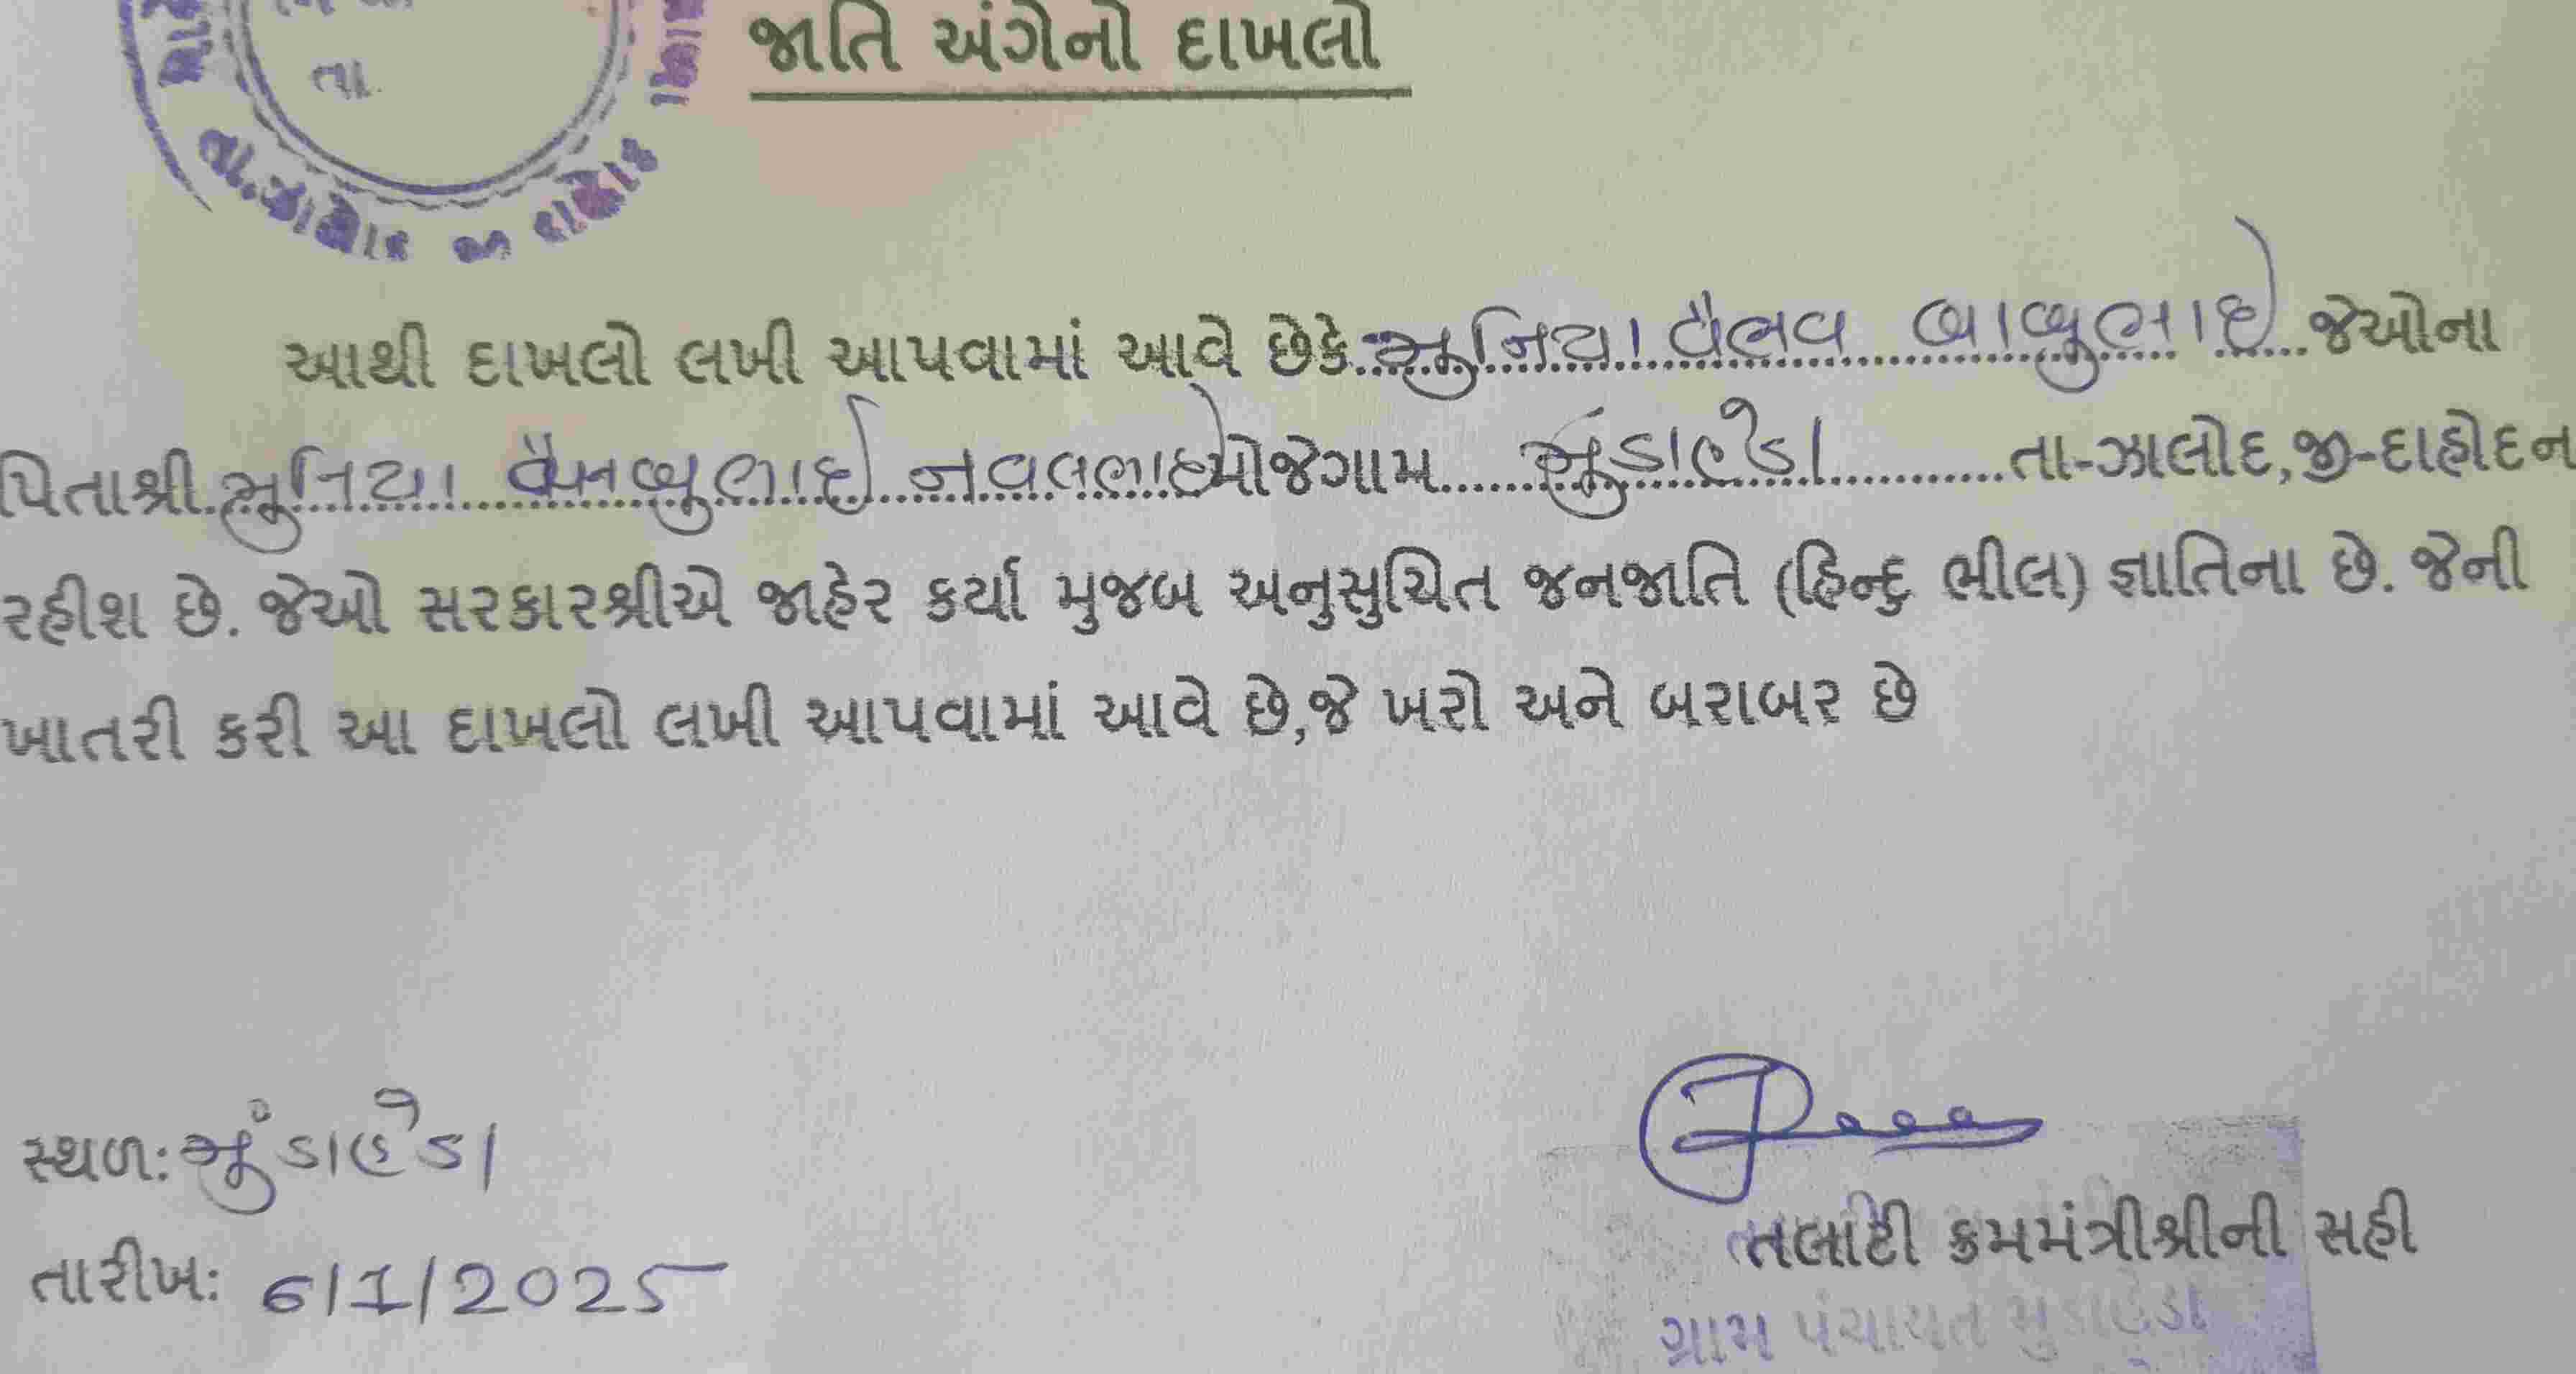 જાતિ અંગેનો દાખલો
તા.
તા.ઝાલોદ જી દાહોદ
આથી દાખલો લખી આપવામાં આવે છેકે...મુનિયા વૈભવ બાબુભાઈ.....જેઓના
પિતાશ્રી.મુનિયા બાબુભાઈ નવલભાઈ મોજેગામ.....મુંડાહેડા............તા-ઝાલોદ,જી-દાહોદન
રહીશ છે. જેઓ સરકારશ્રીએ જાહેર કર્યા મુજબ અનુસુચિત જનજાતિ (હિન્દુ ભીલ) જ્ઞાતિના છે. જેની
ખાતરી કરી આ દાખલો લખી આપવામાં આવે છે,જે ખરો અને બરાબર છે
સ્થળ: મુંડાહેડા
તારીખ: 6/1/2025
તલાટી ક્રમમંત્રીશ્રીની સહી
ગ્રામ પંચાયત મુંડાહેડા